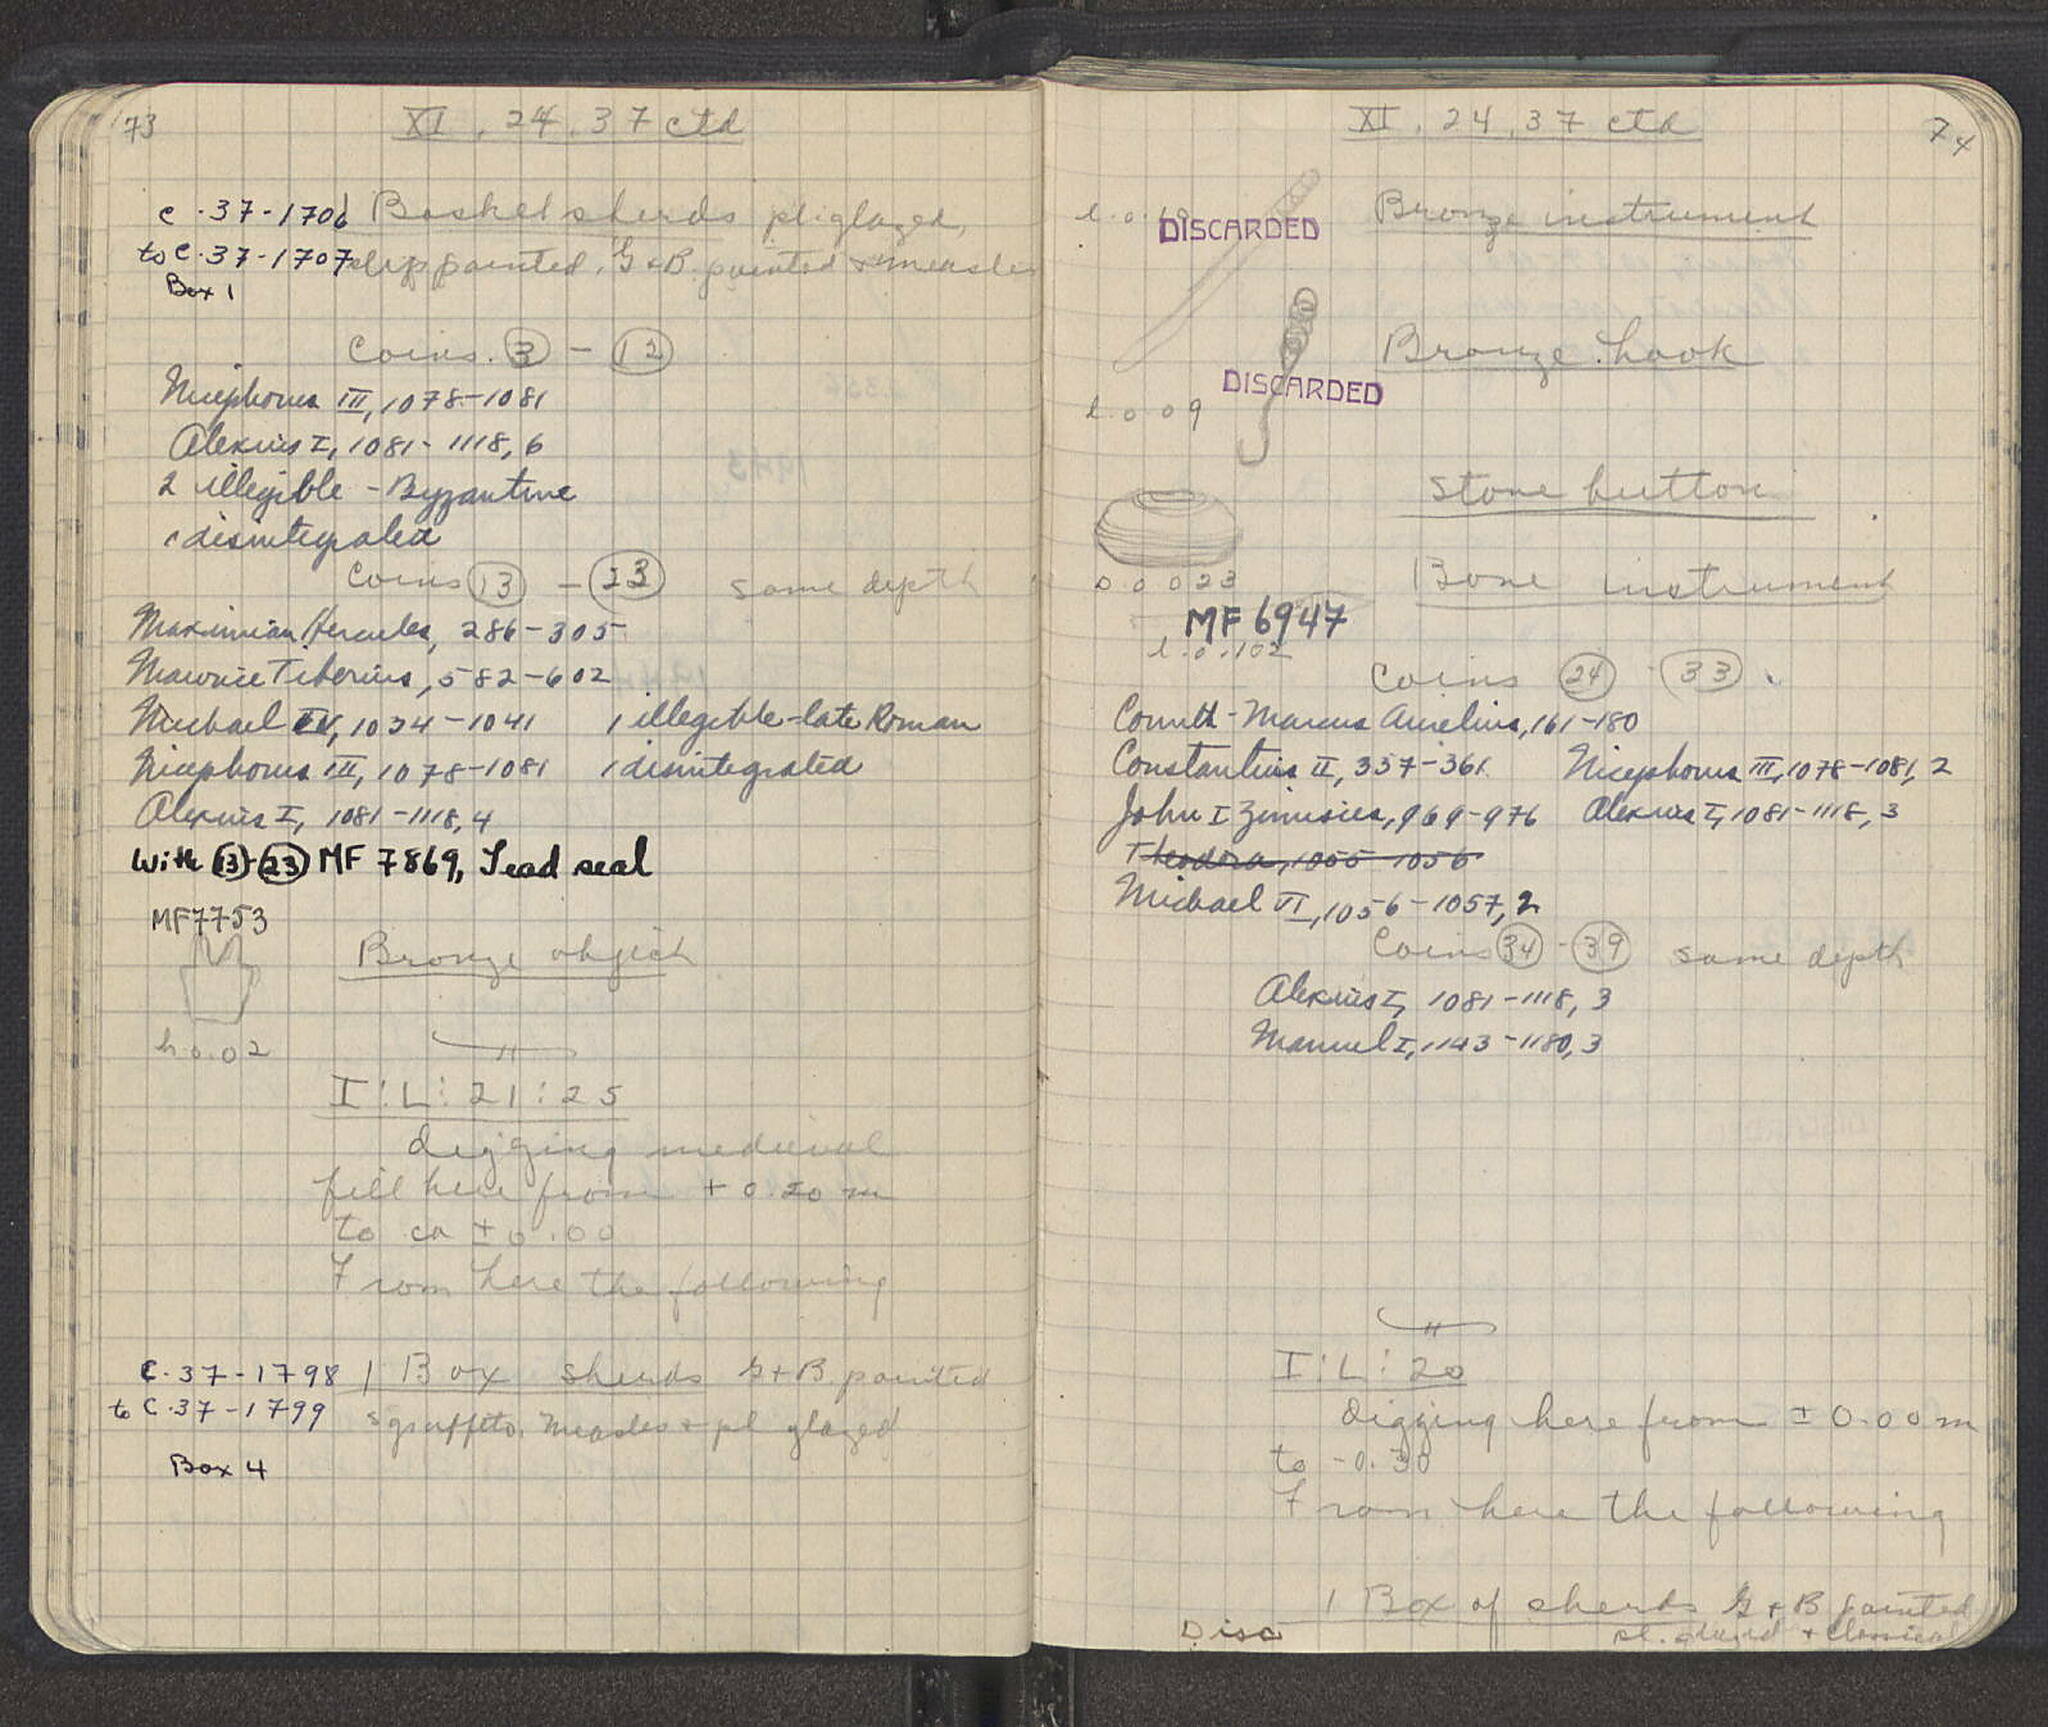 73
XI. 24. 37 ctd
C.37-1706 Basket sherds pl. glazed,
to C.37-1707 slip painted, G + B. painted + measles
Box 1
Coins. 3 - 12
Nicephorus III, 1078-1081
Alexius I, 1081-1118, 6
2 illegible - Byzantine
1 disintegrated
Coins 13 - 23 same depth
Maximian Hercules, 286-305
Maurice Tiberius, 582-602
Michael IV, 1034-1041 1 illegible-late Roman
Nicephorus III, 1078-1081 1 disintegrated
Alexius I, 1081-1118, 4
With 13-23 MF 7869, Lead seal
MF7753
Bronze object
h 0.02
I:L:21:25
digging medieval
fill here from + 0.20 m
to ca ± 0.00
From here the following
C.37-1798 1 Box sherds G+B. painted
to C.37-1799 sgraffito. measles + pl glazed
Box 4
XI. 24. 37 ctd
74
l. 0. DISCARDED Bronze instrument
Bronze hook
DISCARDED
l. 0.09
Stone button
D 0.023 Bone instrument
MF 6947
l. 0.102
Coins 24 - 33
Corinth - Marcus Aurelius, 161-180
Constantius II, 337-361 Nicephorus III, 1078-1081, 2
John I Zimisces, 969-976 Alexius I, 1081-1118, 3
Theodora, 1055-1056
Michael VI, 1056-1057, 2
Coins 34 - 39 same depth
Alexius I, 1081-1118, 3
Manuel I, 1143-1180, 3
I:L:20
digging here from ± 0.00 m
to -0.30
From here the following
1 Box of sherds G + B painted
Disc pl. glazed + Classical